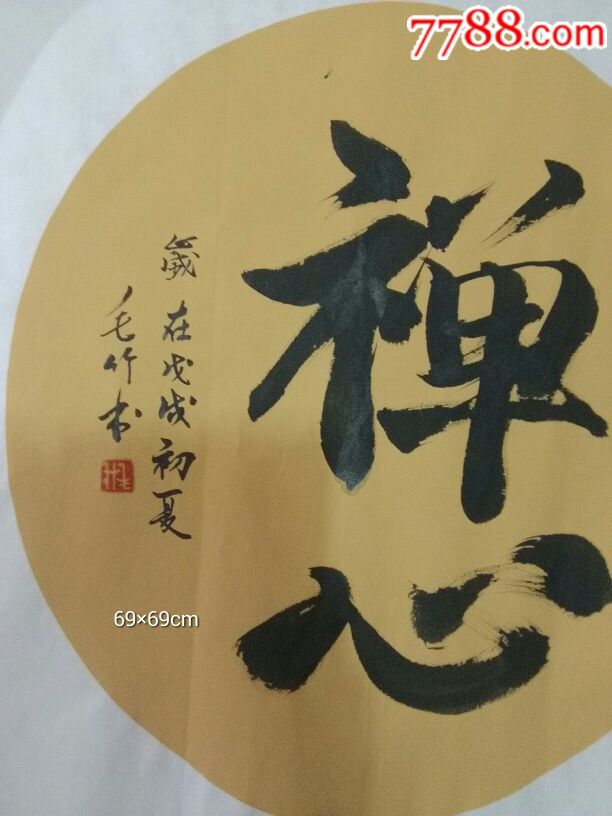 7788.com
禅心
歲在戊戌初夏
毛竹书
69×69cm